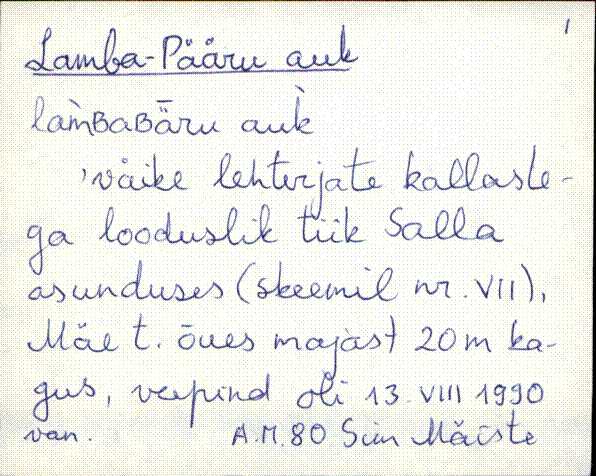 1
Lamba-Pääru auk
lam̀baʙāru auk̀
'väike lehterjate kallaste-
ga looduslik tiik Salla
asunduses (skeemil nr. VII),
Mäe t. õues majast 20 m ka-
gus, veepind oli 13. VIII 1990
van. A.M. 80 Siim Mäiste